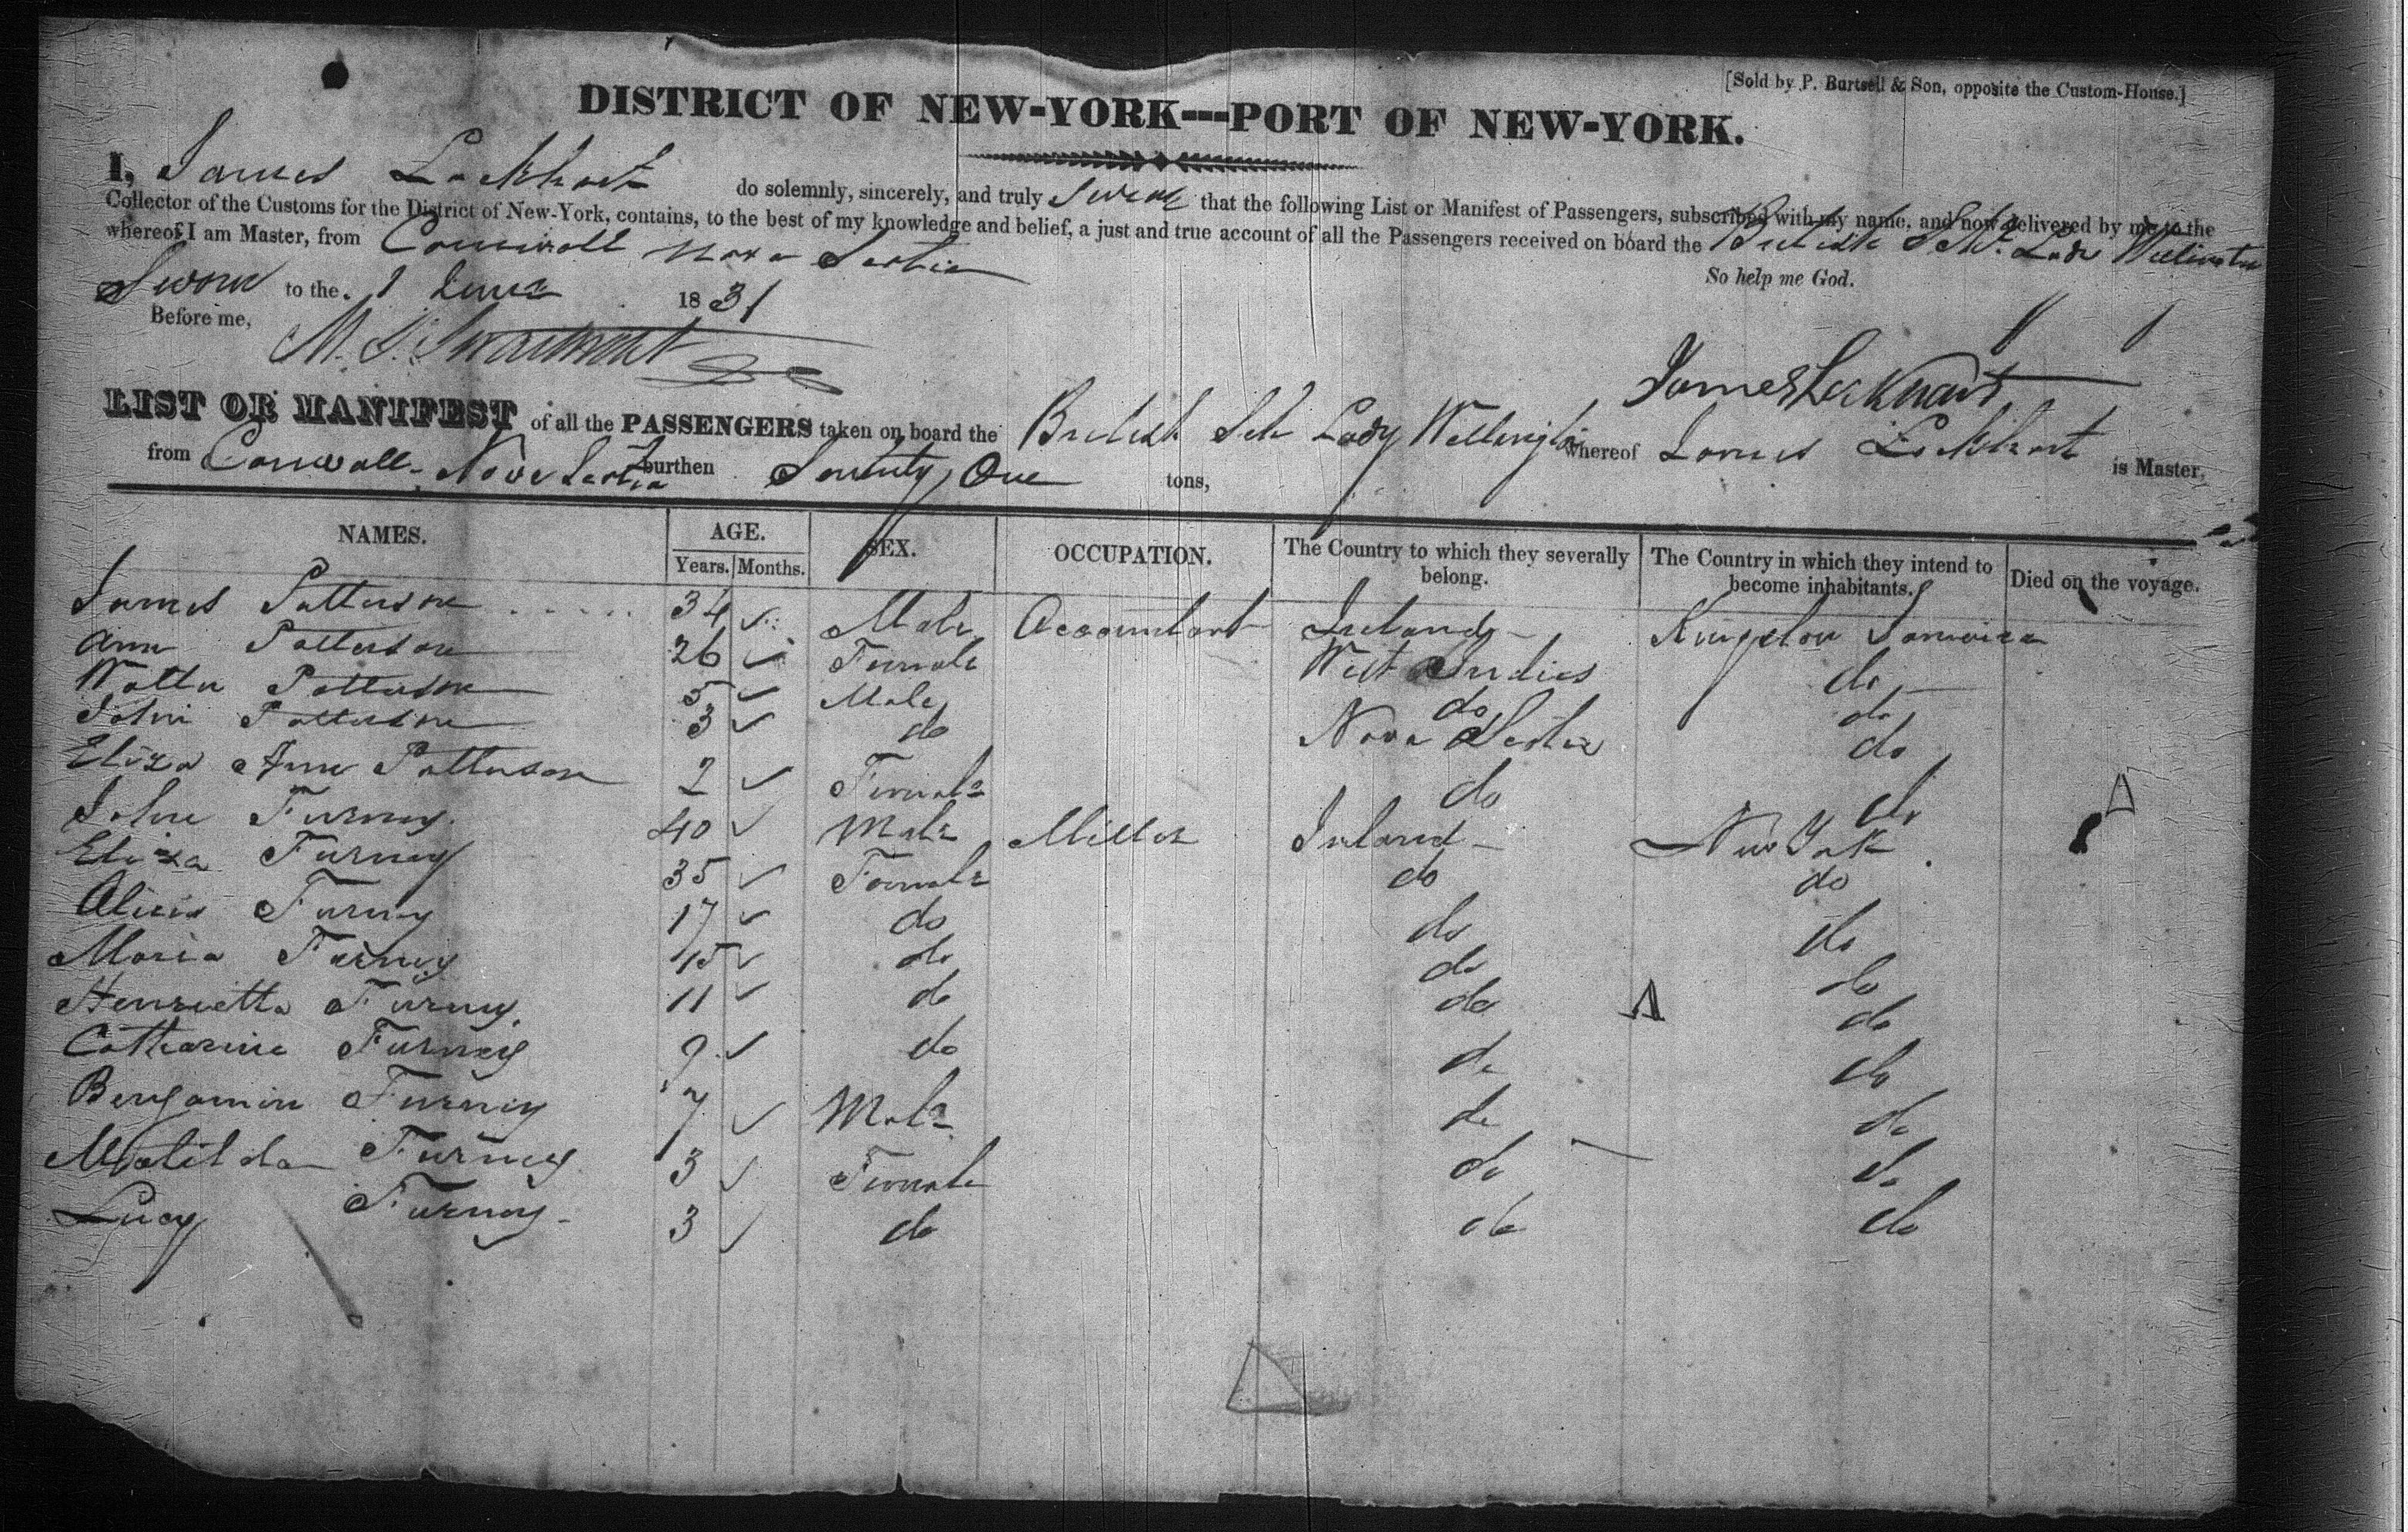 [Sold by P. Burtsell & Son, opposite the Custom-House.]
DISTRICT OF NEW-YORK---PORT OF NEW-YORK.
I, James Lockhart do solemnly, sincerely, and truly Swear that the following List or Manifest of Passengers, subscribed with my name, and now delivered by me to the
Collector of the Customs for the District of New-York, contains, to the best of my knowledge and belief, a just and true account of all the Passengers received on board the British Schr Lady Wellington
whereof I am Master, from Cornwall Nova Scotia
So help me God.
Sworn to the 1 June 1831
Before me,
James Lockhart
LIST OR MANIFEST of all the PASSENGERS taken on board the British Sch Lady Wellington whereof James Lockhart is Master,
from Cornwall Nova Scotia burthen Seventy One tons,
NAMES. AGE. SEX. OCCUPATION. The Country to which they severally belong. The Country in which they intend to become inhabitants. Died on the voyage.
Years. Months.
James Patterson 34 Male Accountant Ireland Kingston Jamaica
Ann Patterson 26 Female West Indies do
Walter Patterson 5 Male do do
John Patterson 3 do Nova Scotia do
Eliza Ann Patterson 2 Female do do
John Furney 40 Male Miller Ireland New York
Eliza Furney 35 Female do do
Alicia Furney 17 do do do
Maria Furney 15 do do do
Henrietta Furney 11 do do do
Catharine Furney 9 do do do
Benjamin Furney 7 Male do do
Matilda Furney 3 Female do do
Lucy Furney 3 do do do